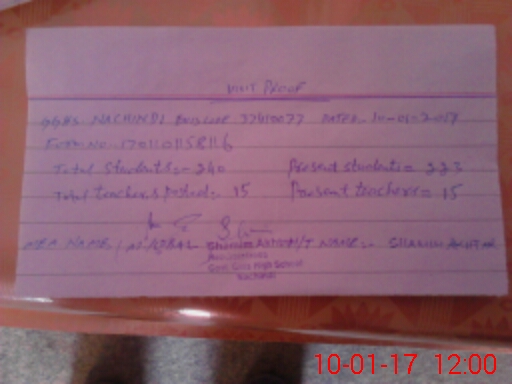 VISIT PROOF
GGHS. NACHINDI EMISCODE 37410077 DATED:- 10-01-2017
FORM NO- 1701101158116
Total students:- 240 Present students= 223
Total teachers posted:- 15 Present teachers= 15
MEA NAME
H/T NAME:- SHAMIM AKHTAR
Shamim Akhtar
Headmistress
Govt Girls High School
Nachindi
10-01-17 12:00